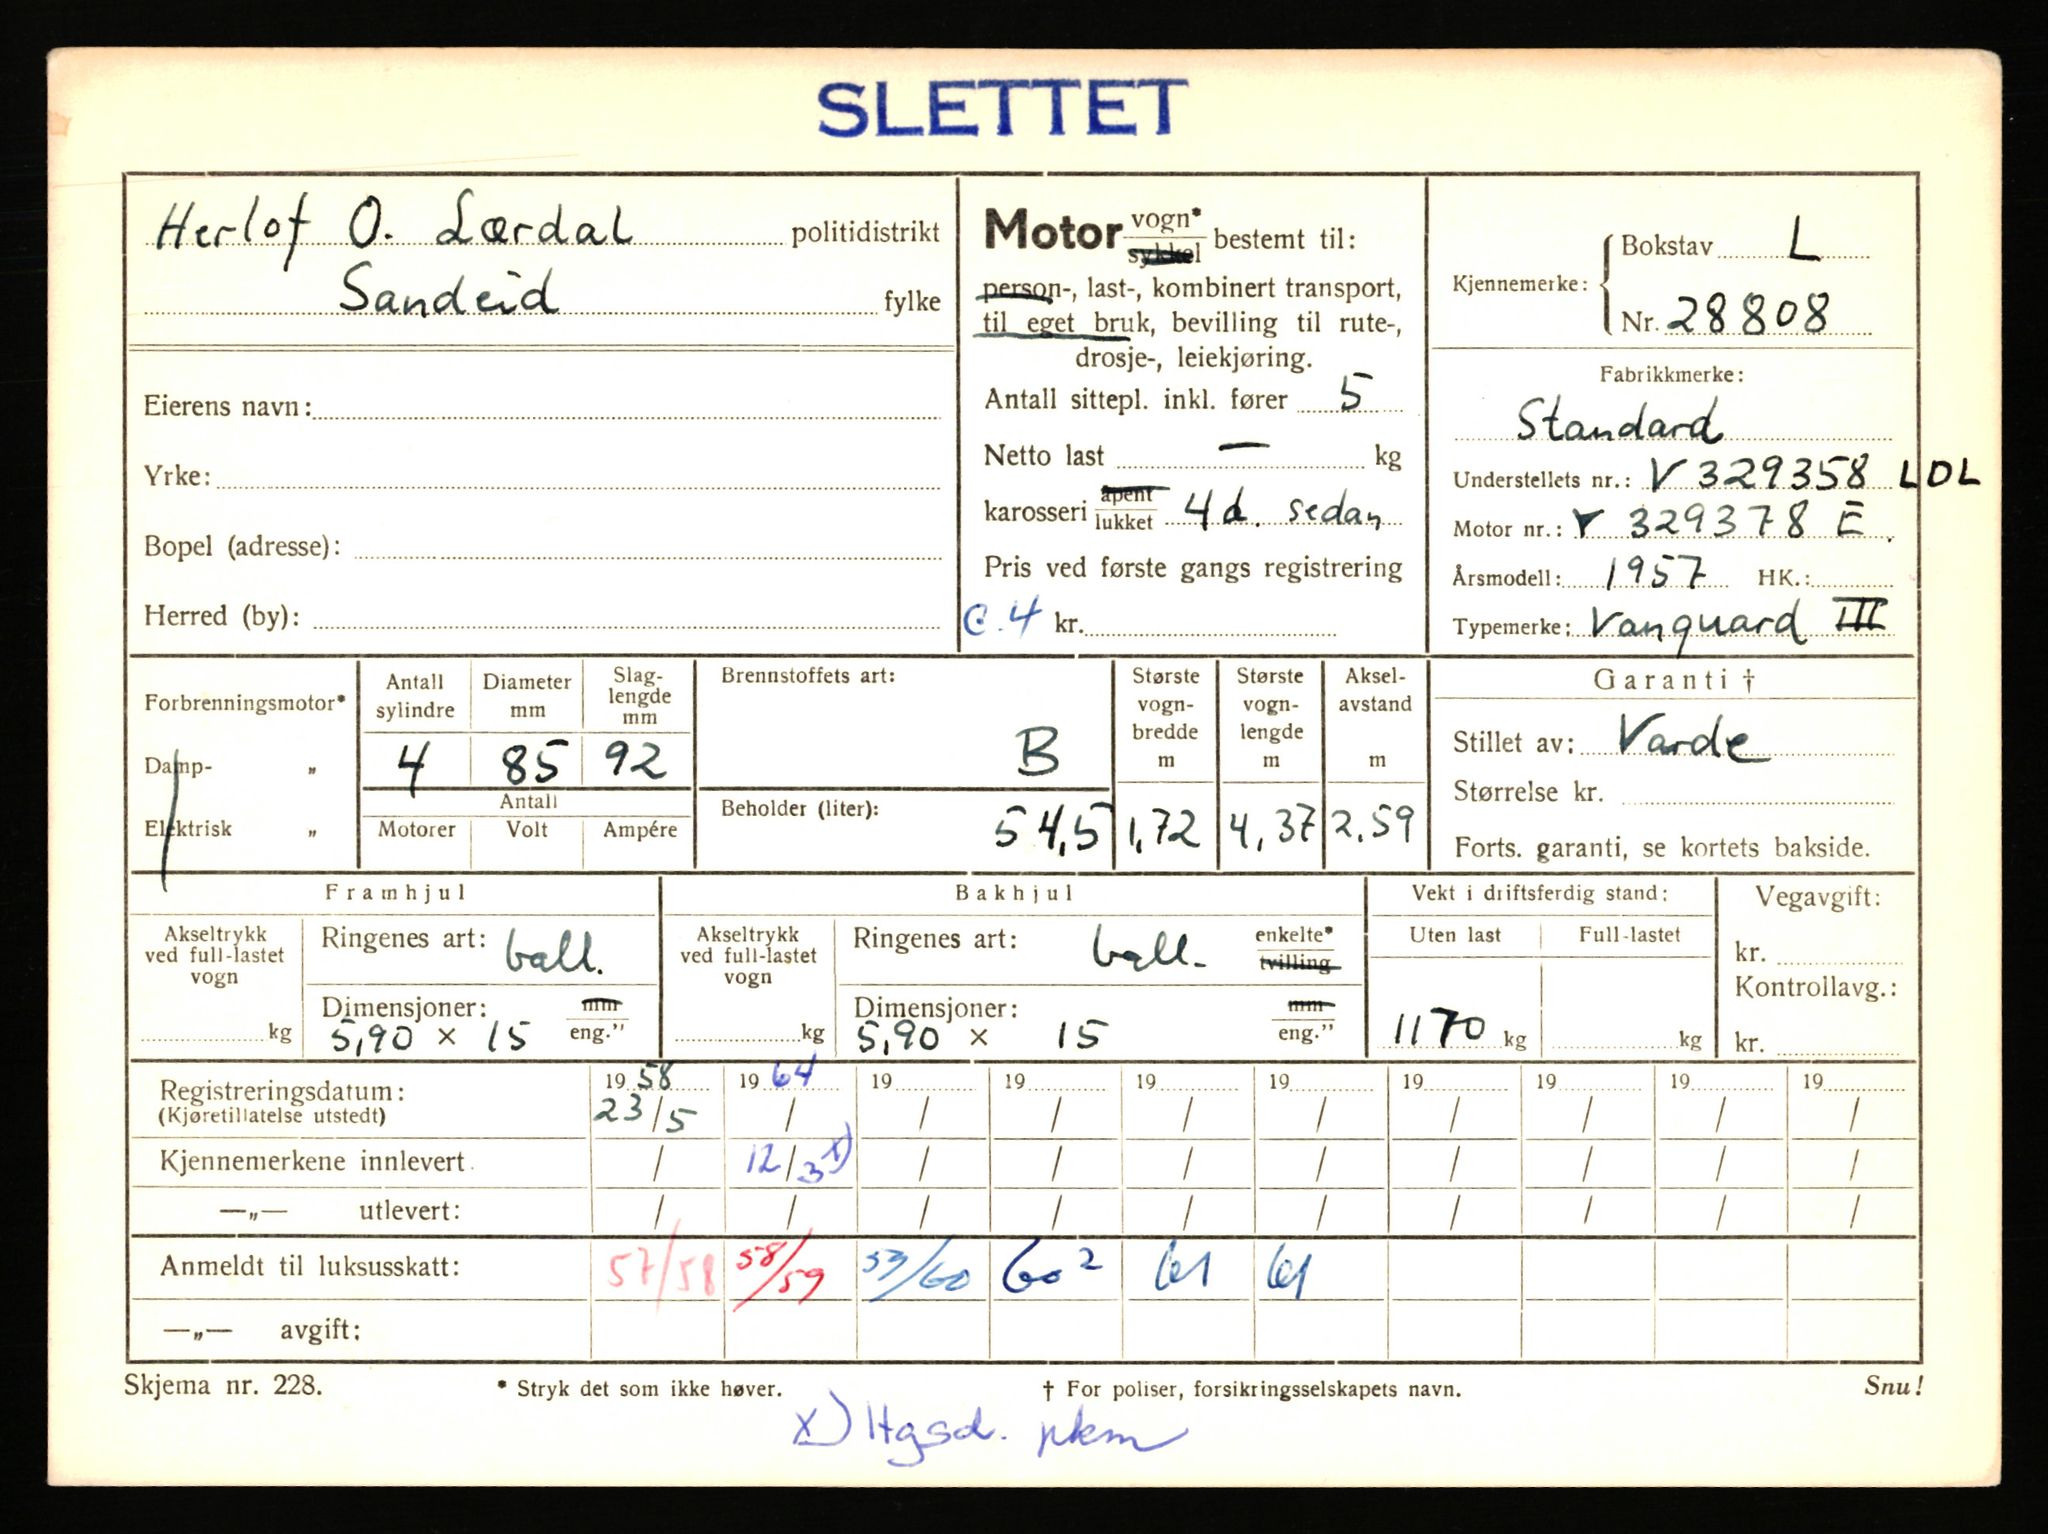 SLETTET
Herlof O. Lærdal politidistrikt
Sandeid fylke
Eierens navn:
Yrke:
Bopel (adresse):
Herred (by):
Motor vogn* / sykkel bestemt til:
person-, last-, kombinert transport,
til eget bruk, bevilling til rute-,
drosje-, leiekjøring.
Antall sittepl. inkl. fører 5
Netto last — kg
karosseri åpent / lukket 4 d. sedan
Pris ved første gangs registrering
c. 4 kr.
Kjennemerke: Bokstav L
Nr. 28808
Fabrikkmerke:
Standard
Understellets nr.: V 329358 LDL
Motor nr.: V 329378 E
Årsmodell: 1957 HK.:
Typemerke: Vanguard III
Forbrenningsmotor*
Damp- „
Elektrisk „
Antall sylindre
Diameter mm
Slag-lengde mm
4 85 92
Antall
Motorer Volt Ampére
Brennstoffets art:
B
Beholder (liter):
54,5
Største vogn-bredde m
1,72
Største vogn-lengde m
4,37
Aksel-avstand m
2.59
Garanti †
Stillet av: Varde
Størrelse kr.
Forts. garanti, se kortets bakside.
Framhjul
Akseltrykk ved full-lastet vogn
kg
Ringenes art: ball.
Dimensjoner: mm / eng."
5,90 × 15
Bakhjul
Akseltrykk ved full-lastet vogn
kg
Ringenes art: ball. enkelte* / tvilling
Dimensjoner: mm / eng."
5,90 × 15
Vekt i driftsferdig stand:
Uten last Full-lastet
1170 kg kg
Vegavgift:
kr.
Kontrollavg.:
kr.
Registreringsdatum: 19 58 19 64 19 19 19 19 19 19 19 19
(Kjøretillatelse utstedt) 23/5 / / / / / / / / /
Kjennemerkene innlevert / 12/3 x) / / / / / / / /
—„— utlevert: / / / / / / / / / /
Anmeldt til luksusskatt: 57/58 58/59 53/60 60² 61 61
—„— avgift:
Skjema nr. 228. * Stryk det som ikke høver. † For poliser, forsikringsselskapets navn. Snu!
x) Hgsd.